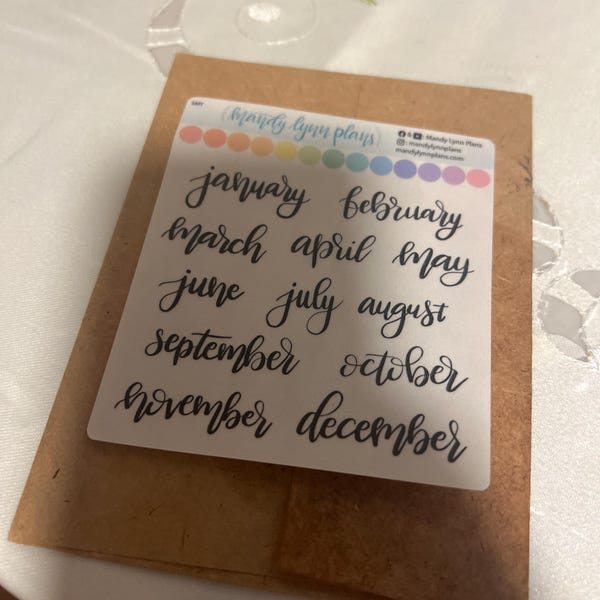 mandy lynn plans
& : Mandy Lynn Plans
: mandylynnplans
mandylynnplans.com
january february
march april may
june july august
september october
november december